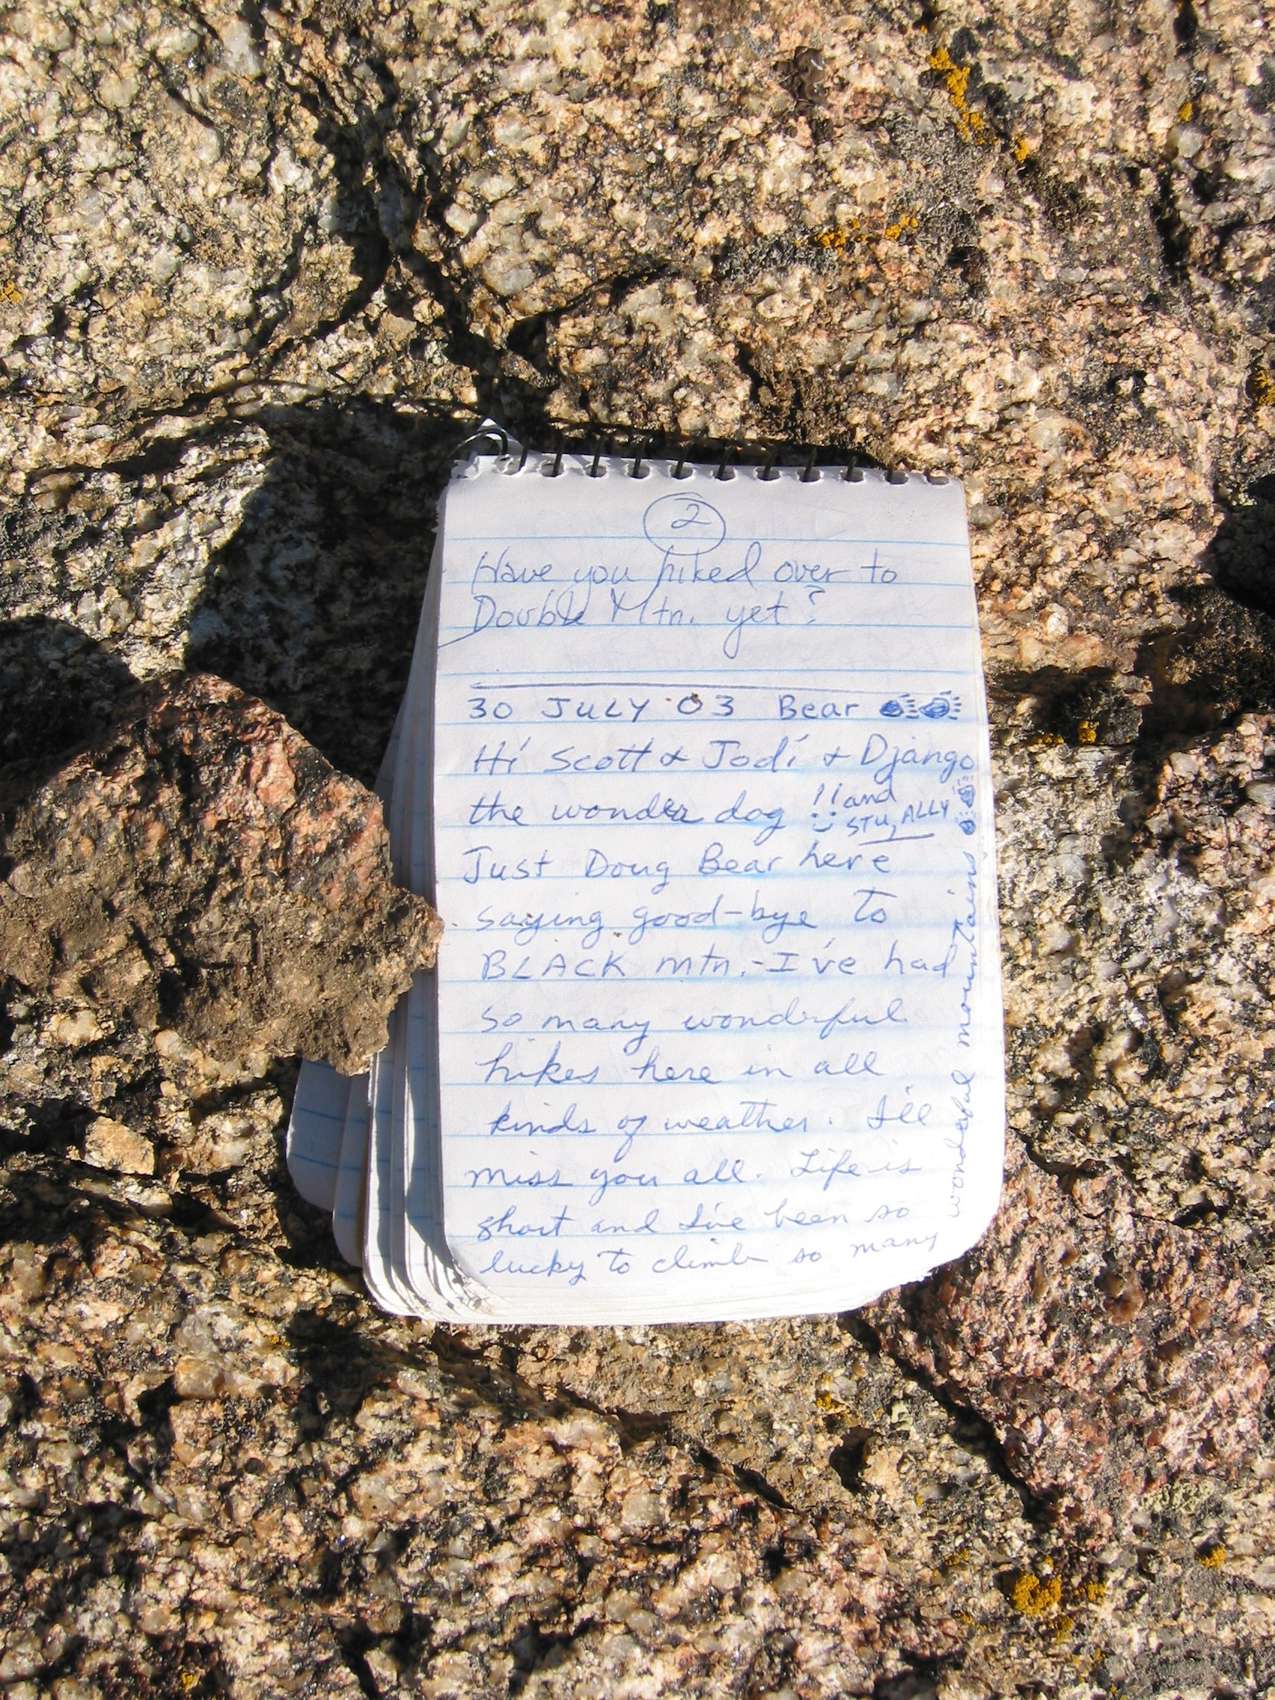 2
Have you hiked over to
Double Mtn. yet?
30 JULY '03 Bear
Hi Scott & Jodi & Django
the wonder dog !! and
STU, ALLY
Just Doug Bear here
saying good-bye to
BLACK mtn. - I've had
so many wonderful
hikes here in all
kinds of weather. I'll
miss you all. Life is
short and I've been so
lucky to climb so many
wonderful mountains